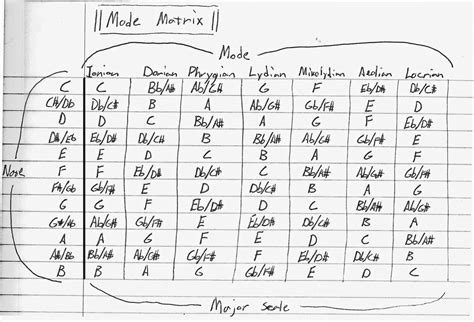 || Mode Matrix ||
Mode
Ionian Dorian Phrygian Lydian Mixolydian Aeolian Locrian
C C Bb/A# Ab/G# G F Eb/D# Db/C#
C#/Db Db/C# B A Ab/G# Gb/F# E D
D D C Bb/A# A G F Eb/D#
D#/Eb Eb/D# Db/C# B Bb/A# Ab/G# Gb/F# E
E E D C B A G F
Note
F F Eb/D# Db/C# C Bb/A# Ab/G# Gb/F#
F#/Gb Gb/F# E D Db/C# B A G
G G F Eb/D# D C Bb/A# Ab/G#
G#/Ab Ab/G# Gb/F# E Eb/D# Db/C# B A
A A G F E D C Bb/A#
A#/Bb Bb/A# Ab/G# Gb/F# F Eb/D# Db/C# B
B B A G Gb/F# E D C
Major scale